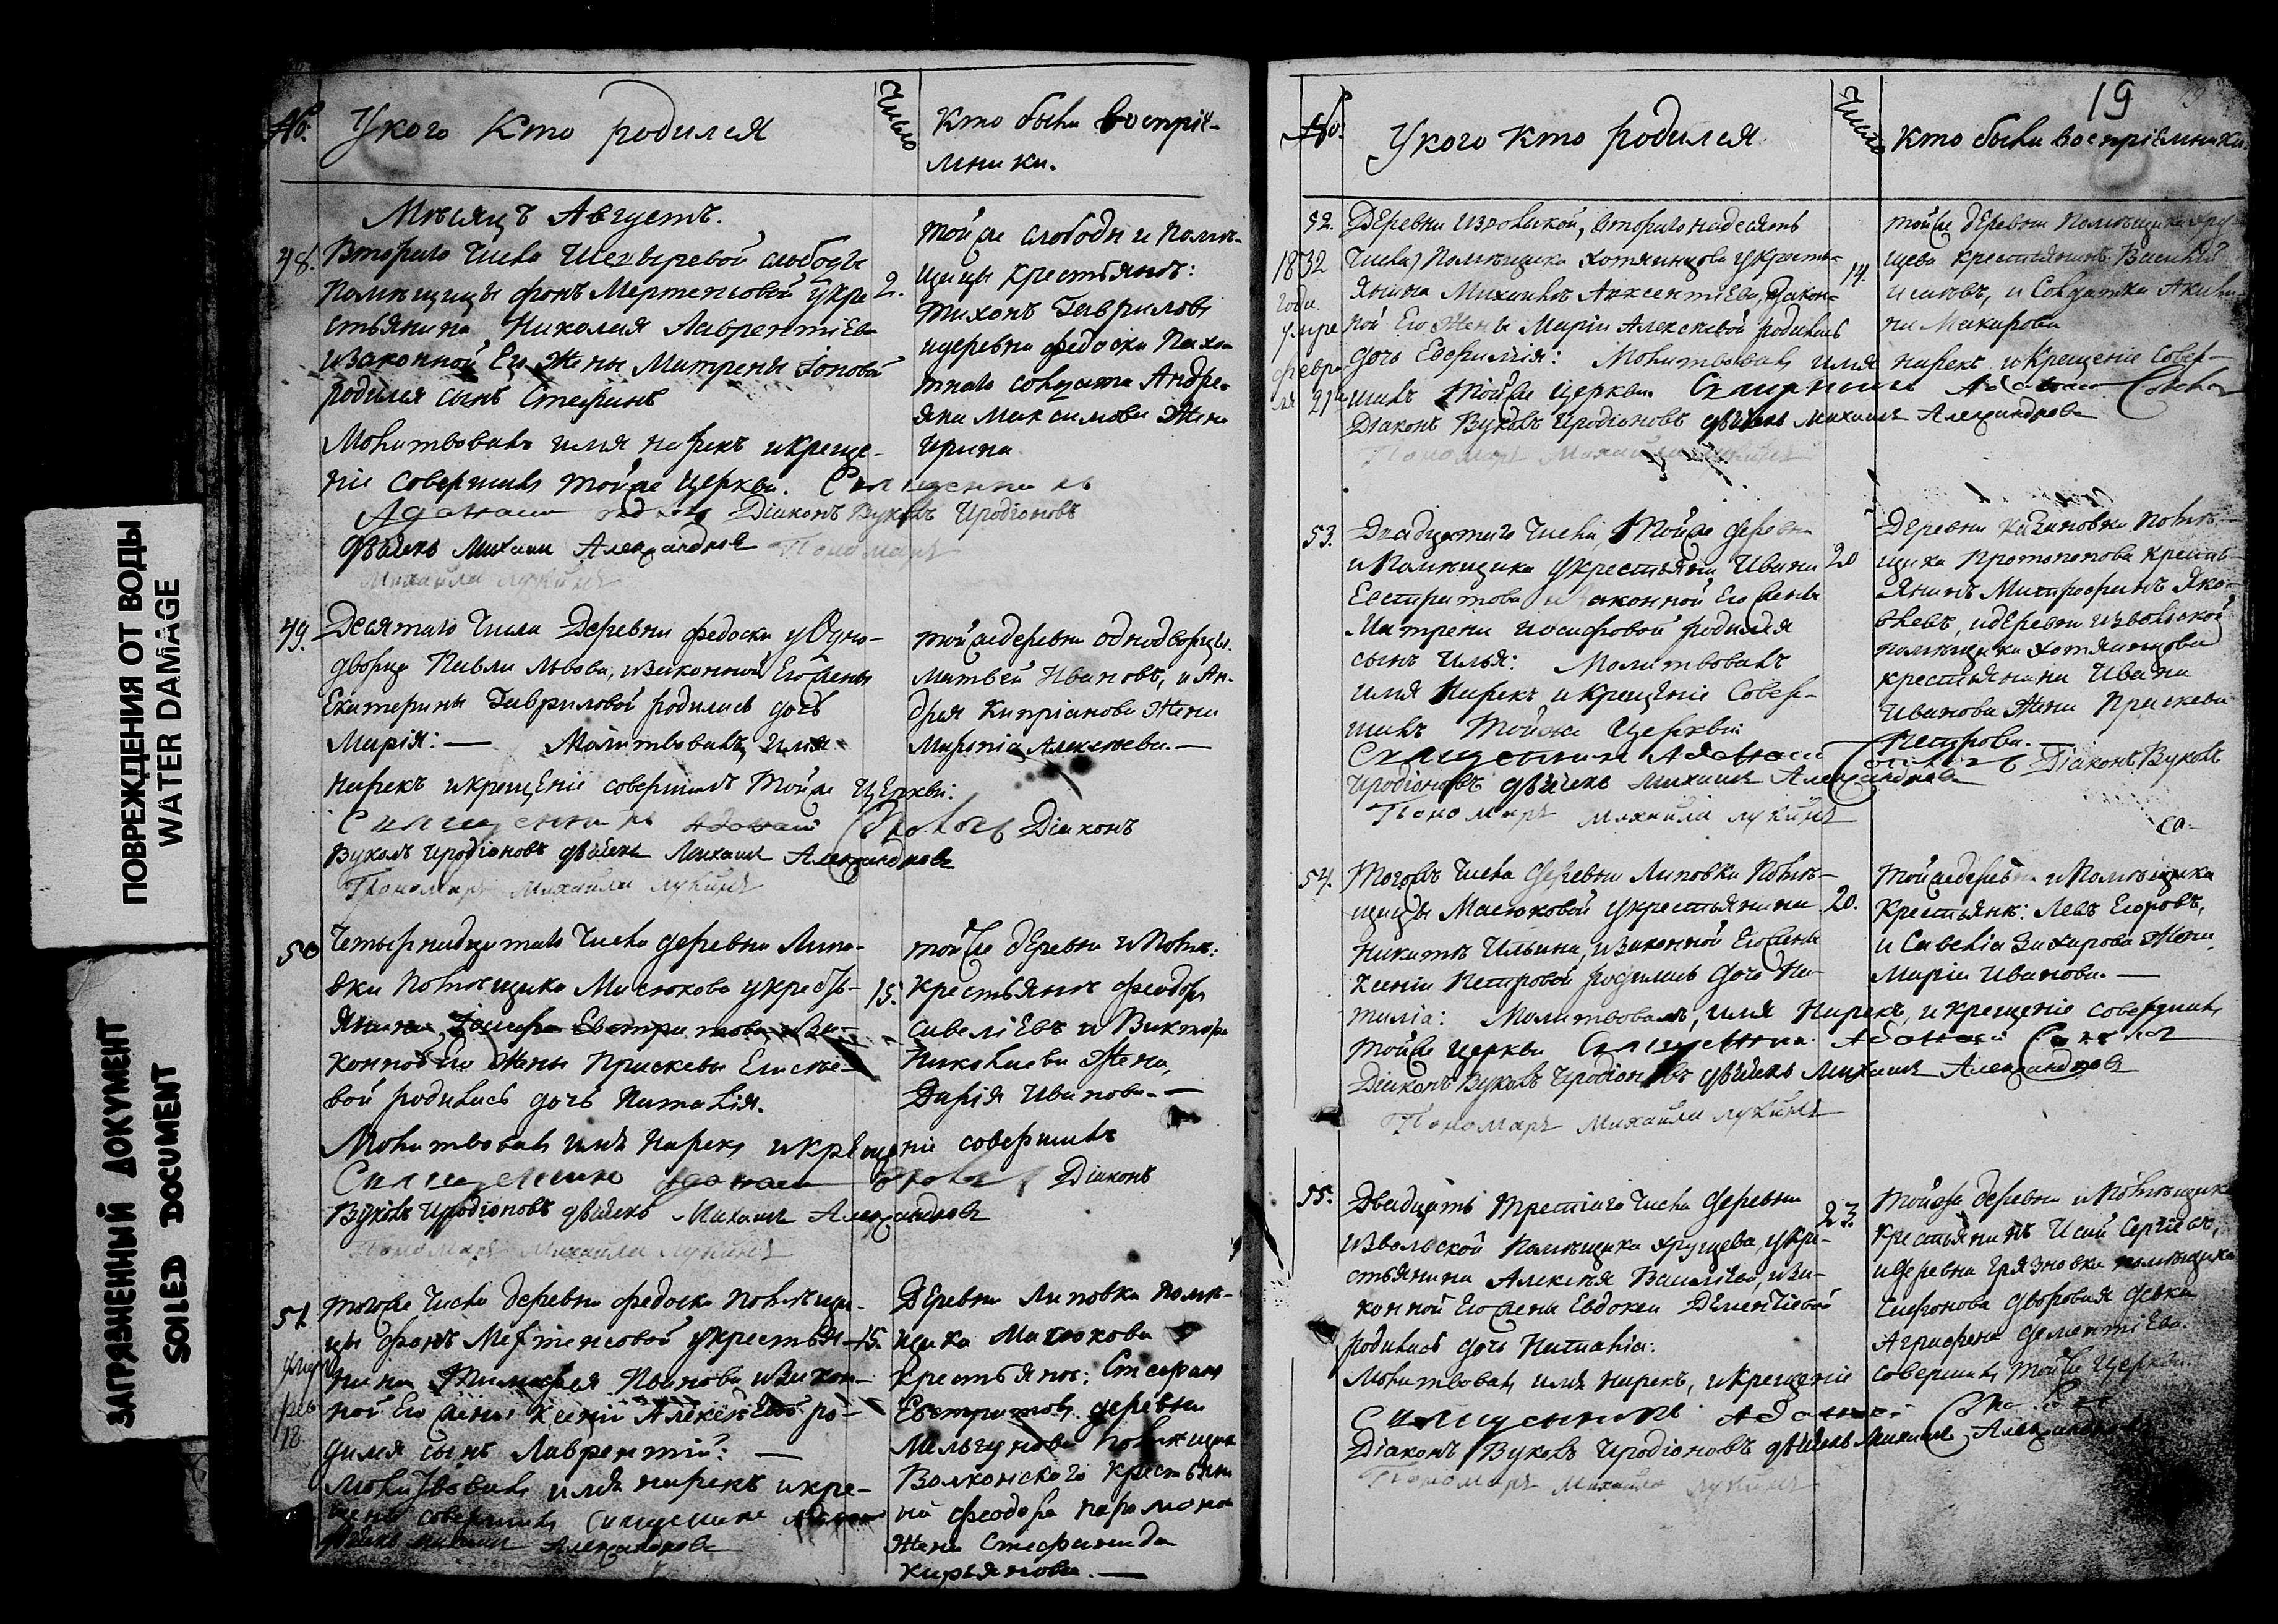 ПОВРЕЖДЕНИЯ ОТ ВОДЫ
WATER DAMAGE
ЗАГРЯЗНЕННЫЙ ДОКУМЕНТ
SOILED DOCUMENT
№.
У кого кто родился
Число
Кто были воспріе-
мники.
Мѣсяцъ Августъ.
48. Втораго числа слободы
помѣщицы фонъ Мертенсовой у кре-
стьянина Николая Лаврентіева
и законной Его жены Матрены Іоновой
родился сынъ Стефанъ
Молитвовалъ имя нарекъ и креще-
ніе совершилъ той же церкви. Священникъ
Діаконъ Вуколъ Иродіоновъ
дьячекъ Михаилъ Александровъ Пономарь
Михайла Лукинъ
2.
той же слободы и помѣ-
щицы крестьянъ:
Тихонъ Гавриловъ
и деревни Федоски
солдата Андре-
яна Максимова жена
Ирина
49. Десятаго числа деревни Федоски у Одно-
дворца Павла Львова, и законной Его жены
Екатерины Гавриловой родилась дочь
Марія: — Молитвовалъ, имя
нарекъ и крещеніе совершилъ той же церкви:
Священникъ Діаконъ
Вуколъ Иродіоновъ дьячекъ Михаилъ Александровъ
Пономарь Михайла Лукинъ
той же деревни однодворцы.
Матвей Ивановъ, и Ан-
дрея Кипріанова жена
Алексеева. —
50 Четырнадцатаго числа деревни Липо-
вки помѣщика Масюкова у кресть-
янина Іосифа Евстратова и за-
конной Его жены Прасковьи Елисѣе-
вой родилась дочь Наталія.
Молитвовалъ имя нарекъ и крещеніе совершилъ
Священникъ Діаконъ
Вуколъ Иродіоновъ дьячекъ Михаилъ Александровъ
Пономарь Михайла Лукинъ
15.
той же деревни и помѣщ:
крестьянъ Феодоръ
Савеліевъ и Виктора
Николаева жена,
Дарія Иванова. —
51. того же числа деревни Федоски помѣщи-
цы фонъ Мертенсовой у крестья-
нина Тимофея Иванова и закон-
ной Его жены Ксеніи Алексѣевой ро-
дился сынъ Лаврентій: —
Молитвовалъ имя нарекъ и кре-
щеніе совершилъ Священникъ
дьячекъ Михаилъ Александровъ
18
15.
Деревни Липовки помѣ-
щика Масюкова
крестьянъ: Стефанъ
Евстратовъ деревни
помѣщика
Волконскаго крестьяни-
на Феодора
жена Стефанида
Кирьянова. —
№.
У кого кто родился
Число
19
Кто были воспріемники.
52. Деревни Извольской, второго надесять
числа, помѣщика Хотяинцова у кресть-
янина Михаила Авксентіева, и закон-
ной Его жены Маріи Алексѣевой родилась
дочь Евфимія: Молитвовалъ имя нарекъ и крещеніе совер-
шилъ той же церкви Священникъ
Діаконъ Вуколъ Иродіоновъ дьячекъ Михаилъ Александровъ
Пономарь Михайла Лукинъ
1832
года
умре
февра-
ля 21
14.
той же деревни помѣщика Хру-
щева крестьянинъ Василій
и солдатка Акили-
на Макарова
53. Двадцатаго числа той же дерев-
и помѣщика у крестьянина Ивана
Евстратова и законной Его жены
Матрены Іосифовой родился
сынъ Илья: Молитвовалъ
имя нарекъ и крещеніе совер-
шилъ той же церкви
Священникъ Діаконъ Вуколъ
Иродіоновъ дьячекъ Михаилъ Александровъ
Пономарь Михайла Лукинъ
20
Деревни Казановки помѣ-
щика Протопопова кресть-
янинъ Митрофанъ Яко-
влевъ, и деревни Извольской
помѣщика Хотяинцова
крестьянина Ивана
Иванова жена Прасковья
Петрова.
54. Того жъ числа деревни Липовки помѣ-
щицы Масюковой у крестьянина
Никиты Ильина, и законной Его жены
Ксеніи Петровой родилась дочь На-
талія: Молитвовалъ, имя нарекъ, и крещеніе совершилъ
той же церкви Священникъ
Діаконъ Вуколъ Иродіоновъ дьячекъ Михаилъ Александровъ
Пономарь Михайла Лукинъ
20.
той же деревни и помѣщика
крестьянъ: Левъ Егоровъ,
и Савелія Захарова жена
Марія Иванова. —
55. Двадцать третіяго числа деревни
Извольской помѣщика Хрущева, у кре-
стьянина Алексѣя Василіева, и за-
конной Его жены Евдокеи Дементіевой
родилась дочь Наталія:
Молитвовалъ имя нарекъ, и крещеніе совершилъ той же церкви
Священникъ
Діаконъ Вуколъ Иродіоновъ дьячекъ Михаилъ Александровъ
Пономарь Михайла Лукинъ
23.
Той же деревни и помѣщика
крестьянинъ Исай Сергіевъ,
и деревни Грязновки помѣщика
дворовая девка
Аграфена Дементіева.